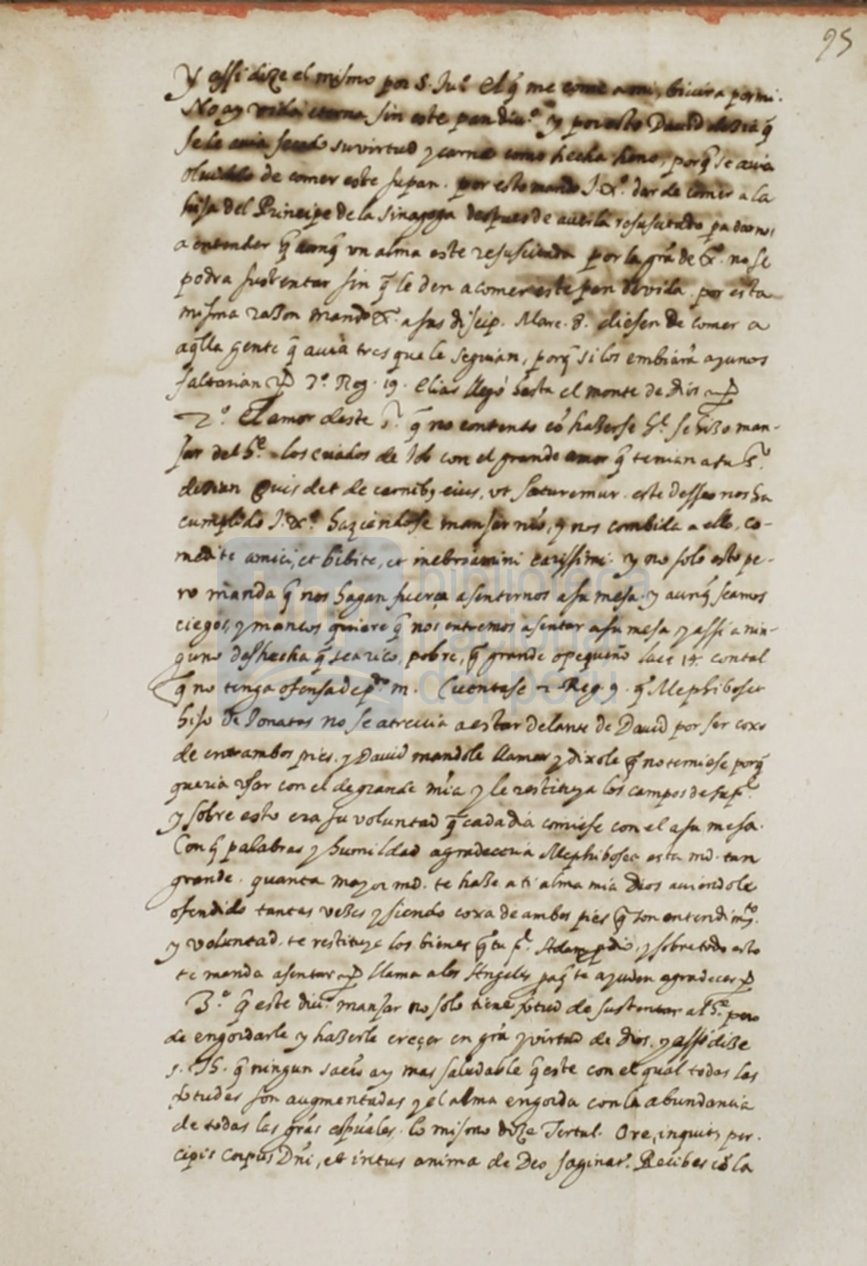 95
Y assi dize el mismo por S. Jul. El q̃ me come a mi, biuira por mi.
No ay vida eterna sin este pan diuº. y por esto Dauid dezia q̃
se le auia secado su virtud y carne como hecha heno, porq̃ se auia
oluidado de comer este su pan. por esto mando J. Xº. dar de comer a la
hija del Principe de la sinagoga despues de auerla resuscitado pa darnos
a entender q̃ aunq̃ vn alma este resuscitada por la grã de Xº. no se
podra sustentar sin q̃ le den a comer este pan de vida. por esta
misma razon mando Xº. a sus discip. Marc. 8. diesen de comer a
aq̃lla gente q̃ auia tres que le seguian, porq̃ si los embiara ayunos
faltarian 3º. Reg. 19. Elias llegó hasta el monte de Dios
2º. El amor deste Sʳ. q̃ no contento cõ hazerse hᵉ. se hizo man-
jar del hᵉ. los criados de Job con el grande amor q̃ tenian a su Sʳ.
dezian Quis det de carnibꝰ eius, vt saturemur. este desseo nos ha
cumplido J. Xº. haziendose manjar nrõ, y nos combida a ello, co-
medite amici, et bibite, et inebriamini carissimi. y no solo esto pe-
ro manda q̃ nos hagan fuerça a sentarnos a su mesa. y aunq̃ seamos
ciegos, y mancos quiere q̃ nos entremos a sentar a su mesa y assi a nin-
guno deshecha q̃ sea rico, pobre, q̃ grande o pequeño luc. 14. con tal
q̃ no tenga ofensa de pᵈᵒ. m. Cuentase 2. Reg. 9. q̃ Mephiboset
hijo de Jonatas no se atreuia a estar delante de Dauid por ser coxo
de entrambos pies. y Dauid mandole llamar y dixole q̃ no temiese porq̃
queria vsar con el de grande mĩa y le restituya los campos de su pᵉ.
y sobre esto era su voluntad q̃ cada dia comiese con el a su mesa.
Con q̃ palabras y humildad agradeceria Mephiboset esta md. tan
grande. quanta mayor md. te haze a ti alma mia Dios auiendole
ofendido tantas vezes y siendo coxa de ambos pies q̃ son entendimᵗᵒ.
y voluntad. te restituye los bienes q̃ tu pᵉ. Adam pdió, y sobre todo esto
te manda asentar llama a los Angeles paq̃ te ayuden agradecer
3º. q̃ este diuº. manjar no solo tiene virtud de sustentar al hᵉ. pero
de engordarle y hazerle creçer en grã y virtud de Dios. y assi dize
S. Th. q̃ ningun sacrõ ay mas saludable q̃ este con el qual todas las
virtudes son augmentadas y el alma engorda con la abundancia
de todas las grãs espũales. lo mismo dize Tertul. Ore, inquit, per-
cipis Corpus Dñi, et intus anima de Deo saginatʳ. Recibes cõ la
biblioteca
nacional
del perú